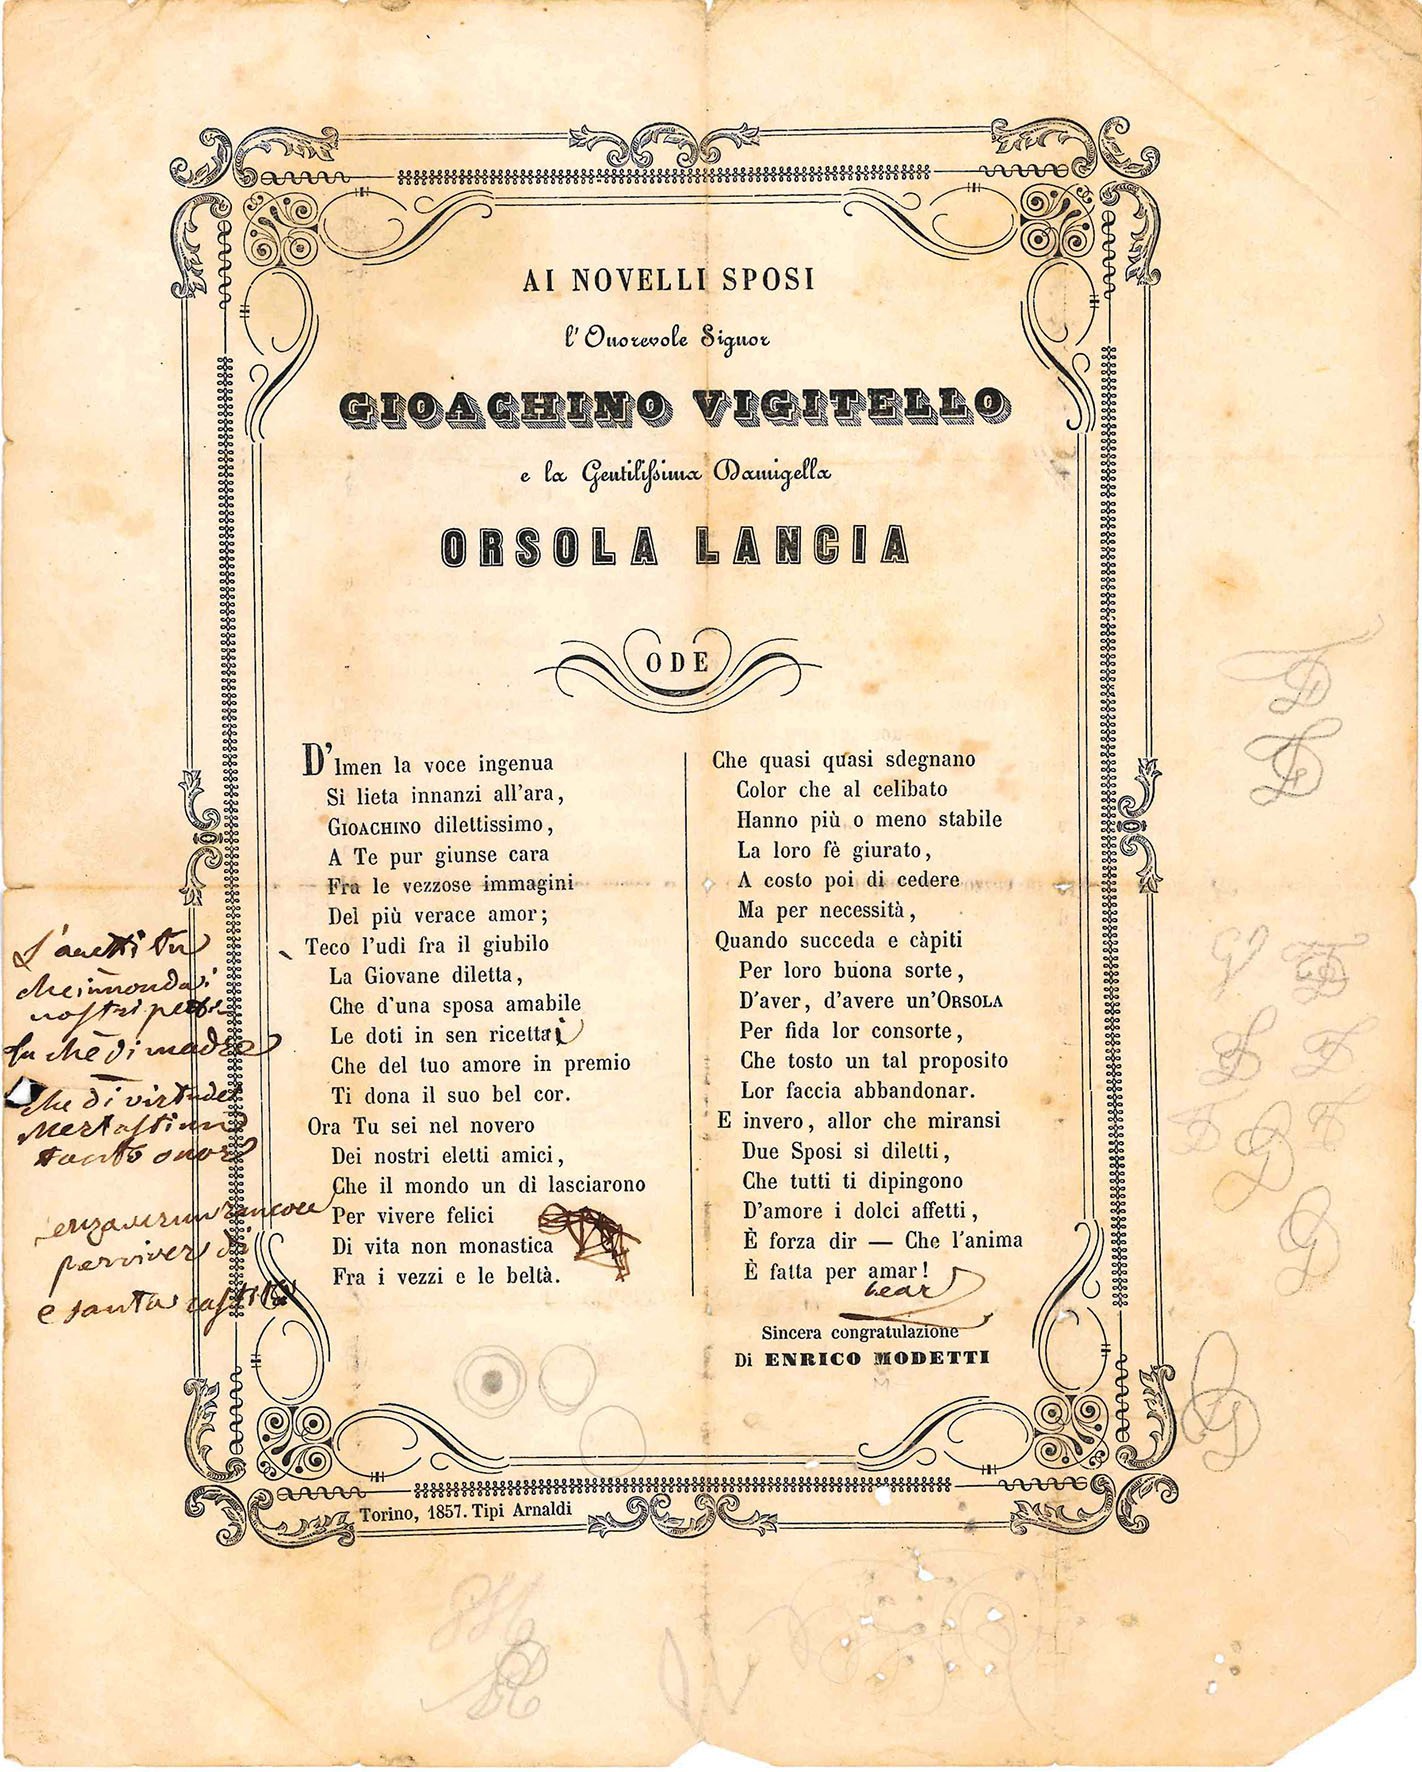 AI NOVELLI SPOSI
l'Onorevole Signor
GIOACHINO VIGITELLO
e la Gentilissima Damigella
ORSOLA LANCIA
ODE
D'Imen la voce ingenua
Sì lieta innanzi all'ara,
GIOACHINO dilettissimo,
A Te pur giunse cara
Fra le vezzose immagini
Del più verace amor;
Teco l'udì fra il giubilo
La Giovane diletta,
Che d'una sposa amabile
Le doti in sen ricetta
Che del tuo amore in premio
Ti dona il suo bel cor.
Ora Tu sei nel novero
Dei nostri eletti amici,
Che il mondo un dì lasciarono
Per vivere felici
Di vita non monastica
Fra i vezzi e le beltà.
Che quasi quasi sdegnano
Color che al celibato
Hanno più o meno stabile
La loro fè giurato,
A costo poi di cedere
Ma per necessità,
Quando succeda e càpiti
Per loro buona sorte,
D'aver, d'avere un'ORSOLA
Per fida lor consorte,
Che tosto un tal proposito
Lor faccia abbandonar.
E invero, allor che miransi
Due Sposi sì diletti,
Che tutti ti dipingono
D'amore i dolci affetti,
È forza dir — Che l'anima
È fatta per amar!
bear
Sincera congratulazione
Di ENRICO MODETTI
Torino, 1857. Tipi Arnaldi
tu
nostri petti
che di madre
che di virtude
tanto onor
rancore
per viver di
e santa